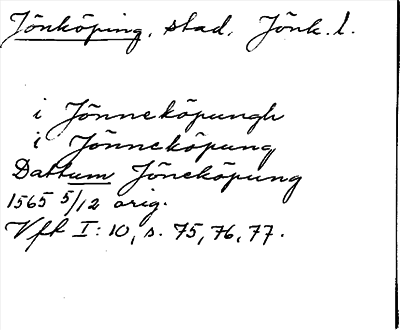 Jönköping, stad, Jönk. l.
i Jönneköpungh
i Jönneköpung
Dattum Jöneköpung
1565 5/12 orig.
Vfk I: 10, s. 75, 76, 77.